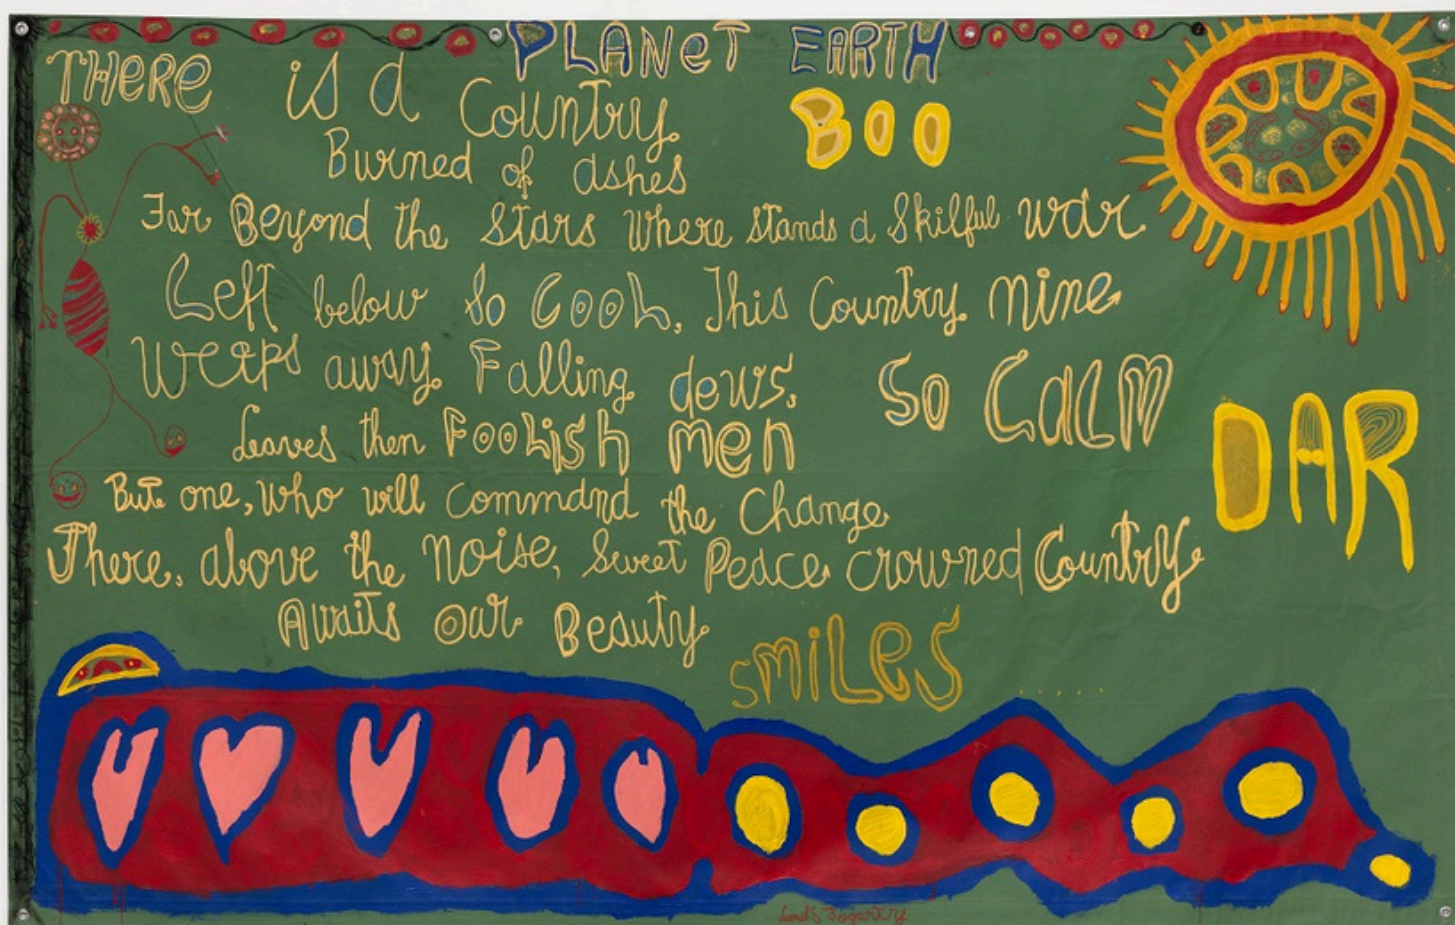 PLANET EARTH
THERE is a Country
BOO
Burned of ashes
Far Beyond the Stars where stands a Skilful war
Left below so COOL, This Country nine
Weeps away Falling dews, SO CALM
DAR
Leaves then FOOLish men
But one, who will command the Change
There, above the NOISE, Sweet Peace crowned Country
Awaits our Beauty
SMILES
Lionel G Fogarty